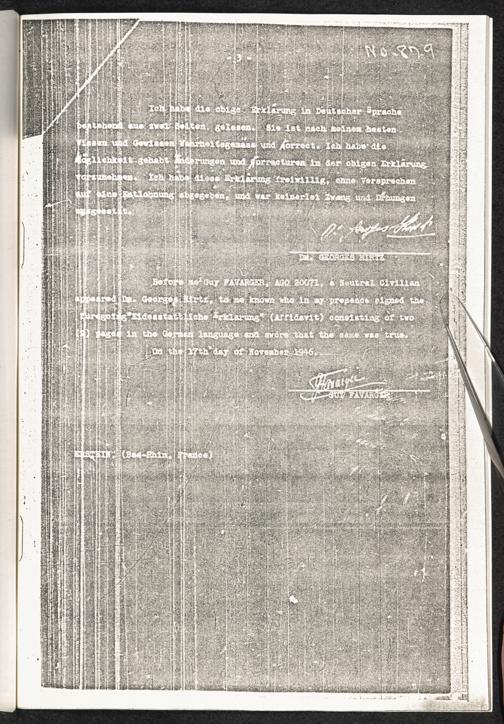 No-879
- 3 -
Ich habe die obige Erklärung in Deutscher Sprache
bestehend aus zwei Seiten, gelesen. Sie ist nach meinem besten
Wissen und Gewissen Wahrheitsgemäss und korrect. Ich habe die
Möglichkeit gehabt Änderungen und Correcturen in der obigen Erklärung
vorzunehmen. Ich habe diese Erklärung freiwillig, ohne Versprechen
auf eine Entlohnung abgegeben, und war keinerlei Zwang und Drhungen
ausgesetzt.
DR. GEORGES HIRTZ
Before me Guy FAVARGER, AGO 20071, a Neutral Civilian
appeared Dr. Georges Hirtz, to me known who in my presence signed the
foregoing "Eidesstattliche Erklarung" (Affidavit) consisting of two
(2) pages in the German language and swore that the same was true.
On the 17th day of November 1946.
GFavarger
GUY FAVARGER
ERSTEIN, (Bas-Rhin, France)